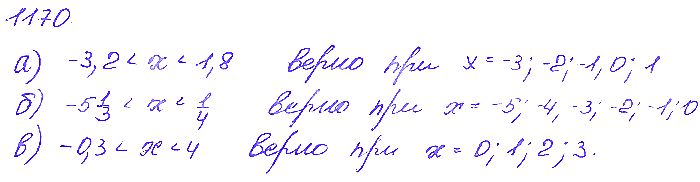 1170
а) -3,2 < x < 1,8 верно при x = -3; -2; -1, 0; 1
б) -5 1/3 < x < 1/4 верно при x = -5; -4, -3; -2; -1; 0
в) -0,3 < x < 4 верно при x = 0; 1; 2; 3.